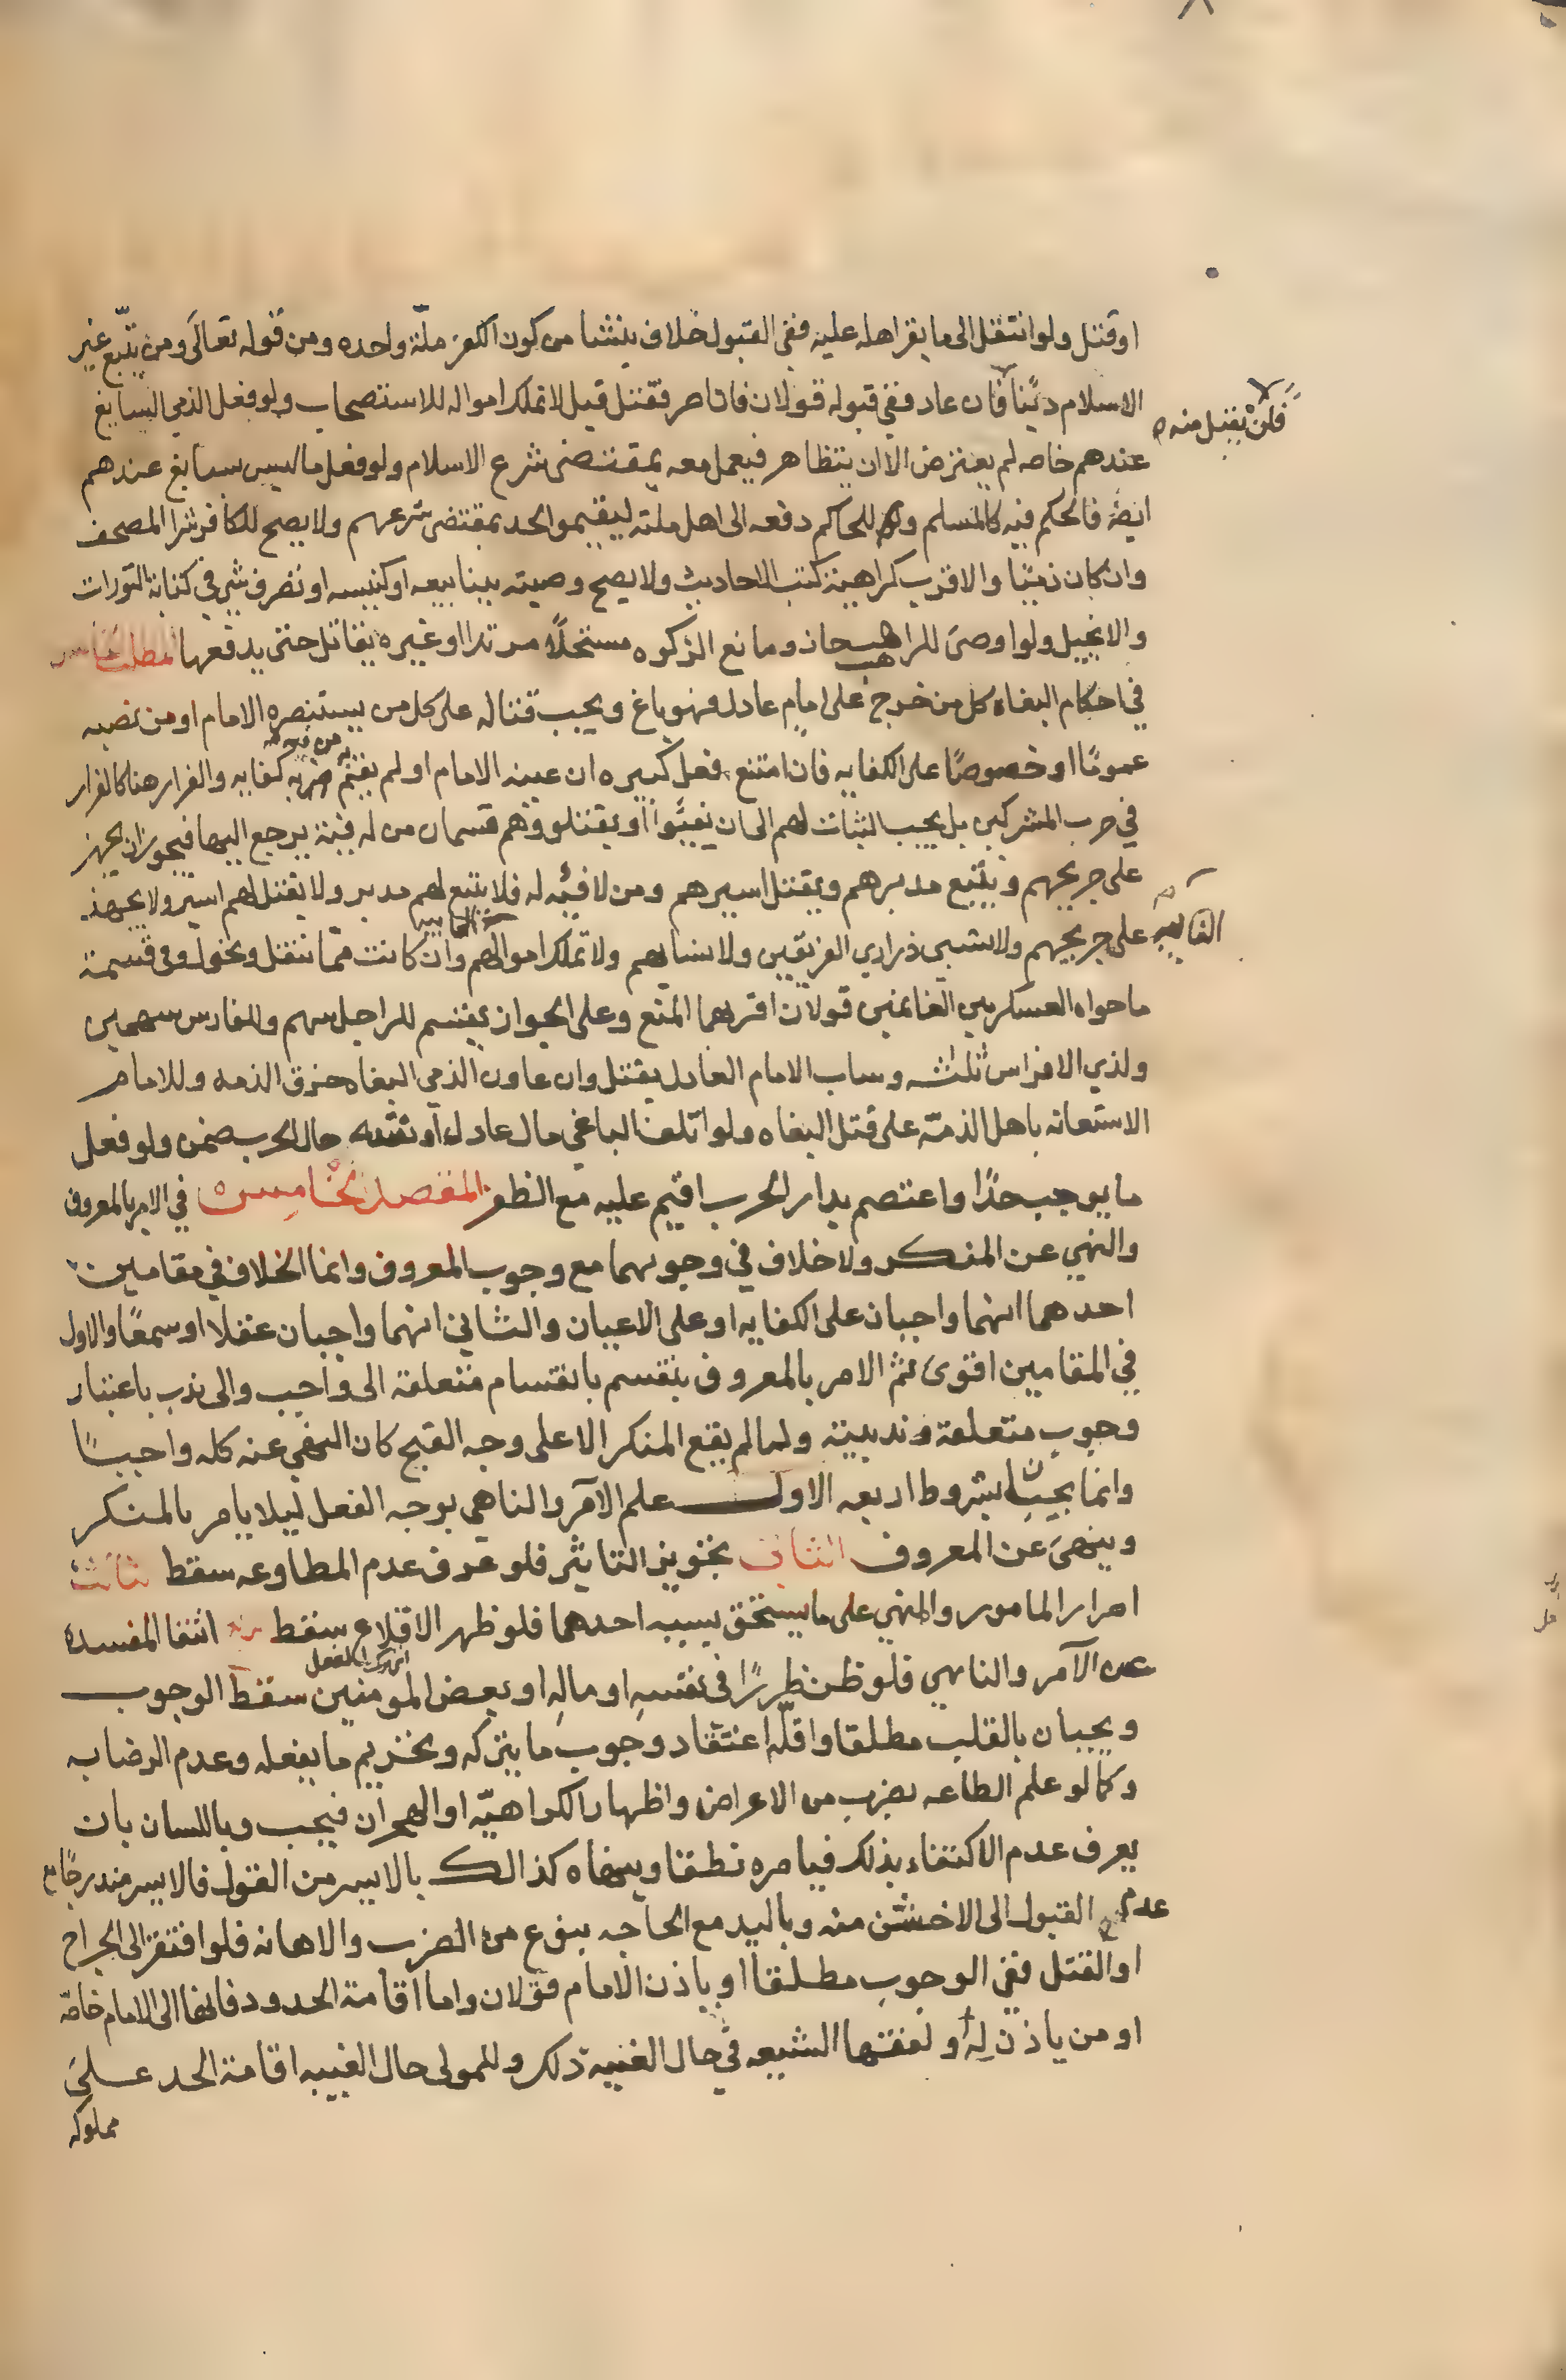 او قتل ولو انتقل الى ما يقر اهله عليه ففي القبول خلاف ينشا من كون الكفر ملّة واحده ومن قوله تعالى ومن يتّبع غير
الاسلام دينًا فان عاد ففي قبوله قولان فان اصر فقتل قيل لا تملك امواله للاستصحاب ولو فعل الذمي السايغ
فلن يقبل منه
عندهم خاصه لم يعترض الا ان يتظاهر فيعمل معه بمقتضى شرع الاسلام ولو فعل ما ليس سايغ عندهم
ايضًا فالحكم فيه كالمسلم وللحاكم دفعه الى اهل ملته ليقيموا الحد بمقتضى شرعهم ولا يصح للكافر شرا المصحف
وان كان ذميًا والاقرب كراهية كتب الاحاديث ولا يصح وصيته ببنا بيعه او كنيسه او تصرف شي في كتابة التورات
والانجيل ولو اوصى للراهب جاز ومانع الزكوه مستحلًا مرتدا او غيره يقاتل حتى يدفعها المطلب الخامس
في احكام البغاه كل من خرج على امام عادل فهو باغ ويجب قتاله على كل من يستنصره الامام او من نصبه
عمومًا او خصوصًا على الكفايه فان امتنع فعل كبيره ان عينه الامام او لم يقم به من فيه كفايه والفرار هنا كالفرار
في حرب المشركين بل يجب الثبات لهم الى ان يفيئوا او يقتلوا وهم قسمان من له فيئة يرجع اليها فيجوز ان يجهز
على جريحهم ويتبع مدبرهم ويقتل اسيرهم ومن لا فيئه له فلا يتبع لهم مدبر ولا يقتل لهم اسير ولا يجهز
على جريحهم ولا تسبى ذراري الفريقين ولا نسايهم ولا تملك اموالهم الغايبه وان كانت ممّا تنقل وتحول وفي قسمة
الغايبه
ما حواه العسكر بين الغانمين قولان اقربهما المنع وعلى الجواز يقسم للراجل سهم وللفارس سهمين
ولذي الافراس ثلثه وساب الامام العادل يقتل وان عاون الذمي البغاه خرق الذمه وللامام
الاستعانه باهل الذمّة على قتل البغاه ولو اتلف الباغي مال عادل او نفسه حال الحرب ضمن ولو فعل
ما يوجب حدًا واعتصم بدار الحرب اقيم عليه مع الظفر المقصد الخامس في الامر بالمعروف
والنهي عن المنكر ولا خلاف في وجوبهما مع وجوب المعروف وانما الخلاف في مقامين
احدهما انهما واجبان على الكفايه او على الاعيان والثاني انهما واجبان عقلا او سمعًا والاول
في المقامين اقوى ثم الامر بالمعروف ينقسم بانقسام متعلقه الى واجب والى ندب باعتبار
وجوب متعلقه وندبيته ولما لم يقع المنكر الا على وجه القبح كان النهي عنه كله واجبًا
وانما يجبان بشروط اربعه الاول علم الآمر والناهي بوجه الفعل ليلا يامر بالمنكر
وينهى عن المعروف الثاني تجويز التاثير فلو عرف عدم المطاوعه سقط الثالث
اصرار المامور والمنهي على ما يستحق بسببه احدهما فلو ظهر الاقلاع سقط انتفا المفسده
عن الآمر والناهي فلو ظن ضررًا في نفسهِ او مالهِ او بعض المومنين سقط الوجوب
ويجبان بالقلب مطلقا واقلّه اعتقاد وجوب ما يتركه وتحريم ما يفعله وعدم الرضا به
وكما لو علم الطاعه بضرب من الاعراض واظهار الكراهيّه او الهجران فيجب وباللسان بان
يعرف عدم الاكتفاء بذلك فيامره نطقا وينهاه كذالك بالايسر من القول فالايسر متدرجًا مع
عدم القبول الى الاخشن منه وباليد مع الحاجه بنوع من الضرب والاهانه فلو افتقر الى الجراح
او القتل ففي الوجوب مطلقا او باذن الامام قولان واما اقامة الحدود فانها الى الامام خاصّه
او من ياذن لهُ ولفقها الشيعه في حال الغيبة ذلك وللمولى حال الغيبه اقامة الحد على
مملوكه